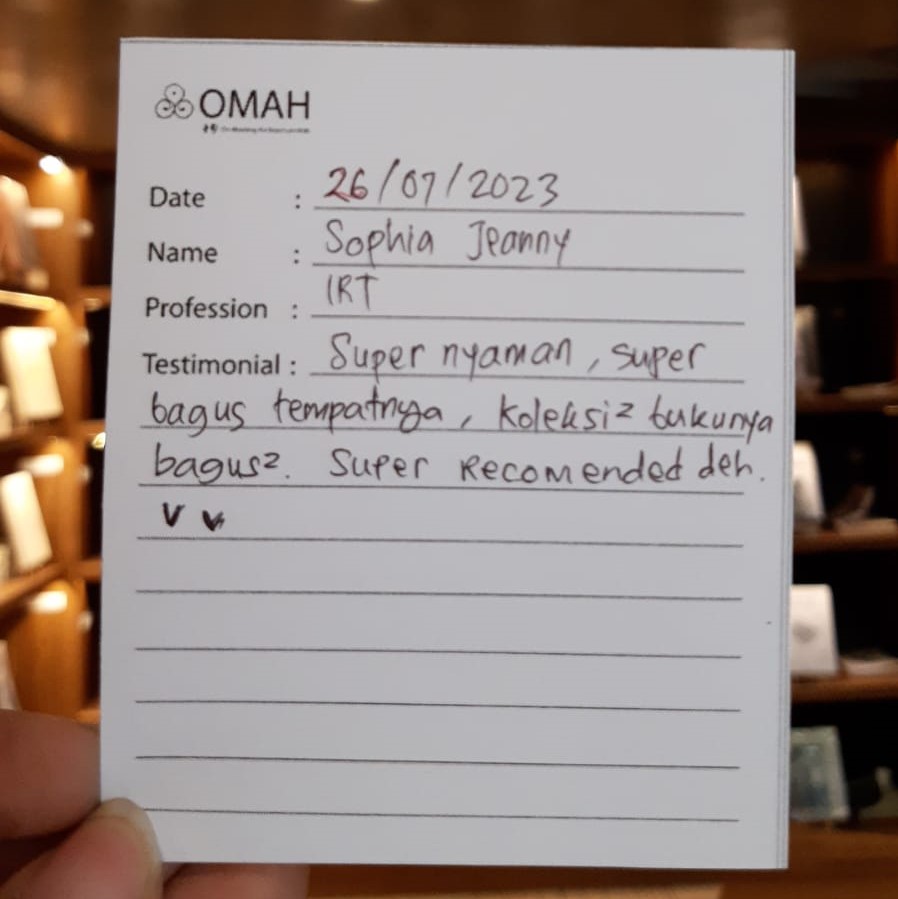 OMAH
Date : 26/07/2023
Name : Sophia Jeanny
Profession : IRT
Testimonial : Super nyaman, super
bagus tempatnya, koleksi² bukunya
bagus². Super Recomended deh.